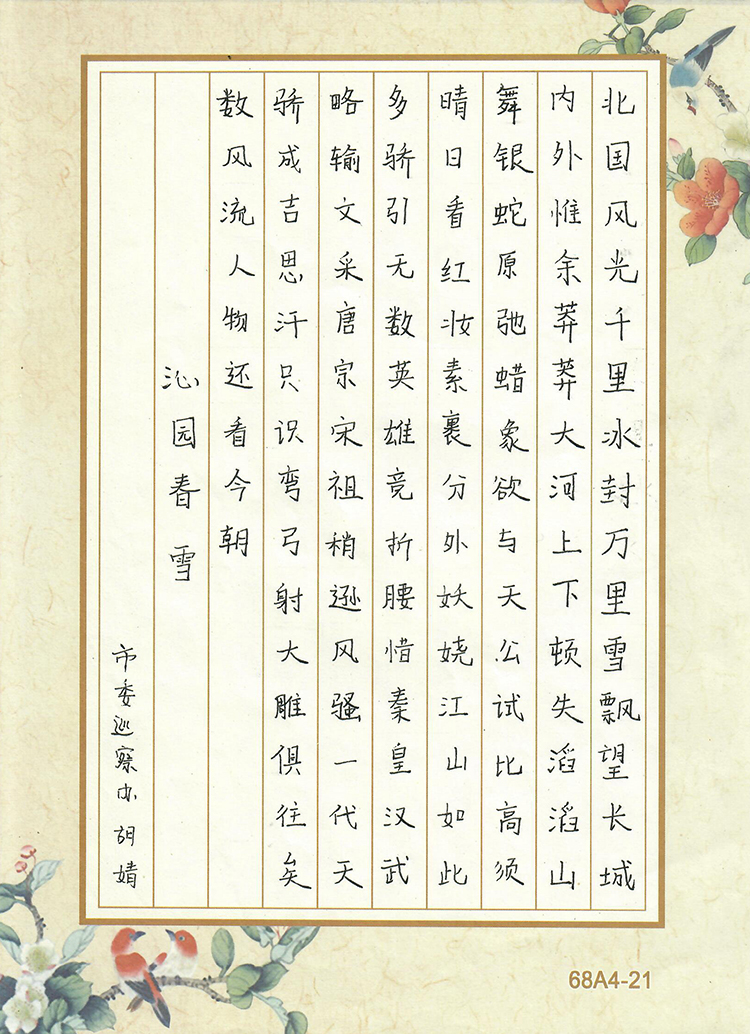 北国风光千里冰封万里雪飘望长城
内外惟余莽莽大河上下顿失滔滔山
舞银蛇原弛蜡象欲与天公试比高须
晴日看红妆素裹分外妖娆江山如此
多骄引无数英雄竞折腰惜秦皇汉武
略输文采唐宗宋祖稍逊风骚一代天
骄成吉思汗只识弯弓射大雕俱往矣
数风流人物还看今朝
沁园春雪
市委巡察办胡婧
68A4-21